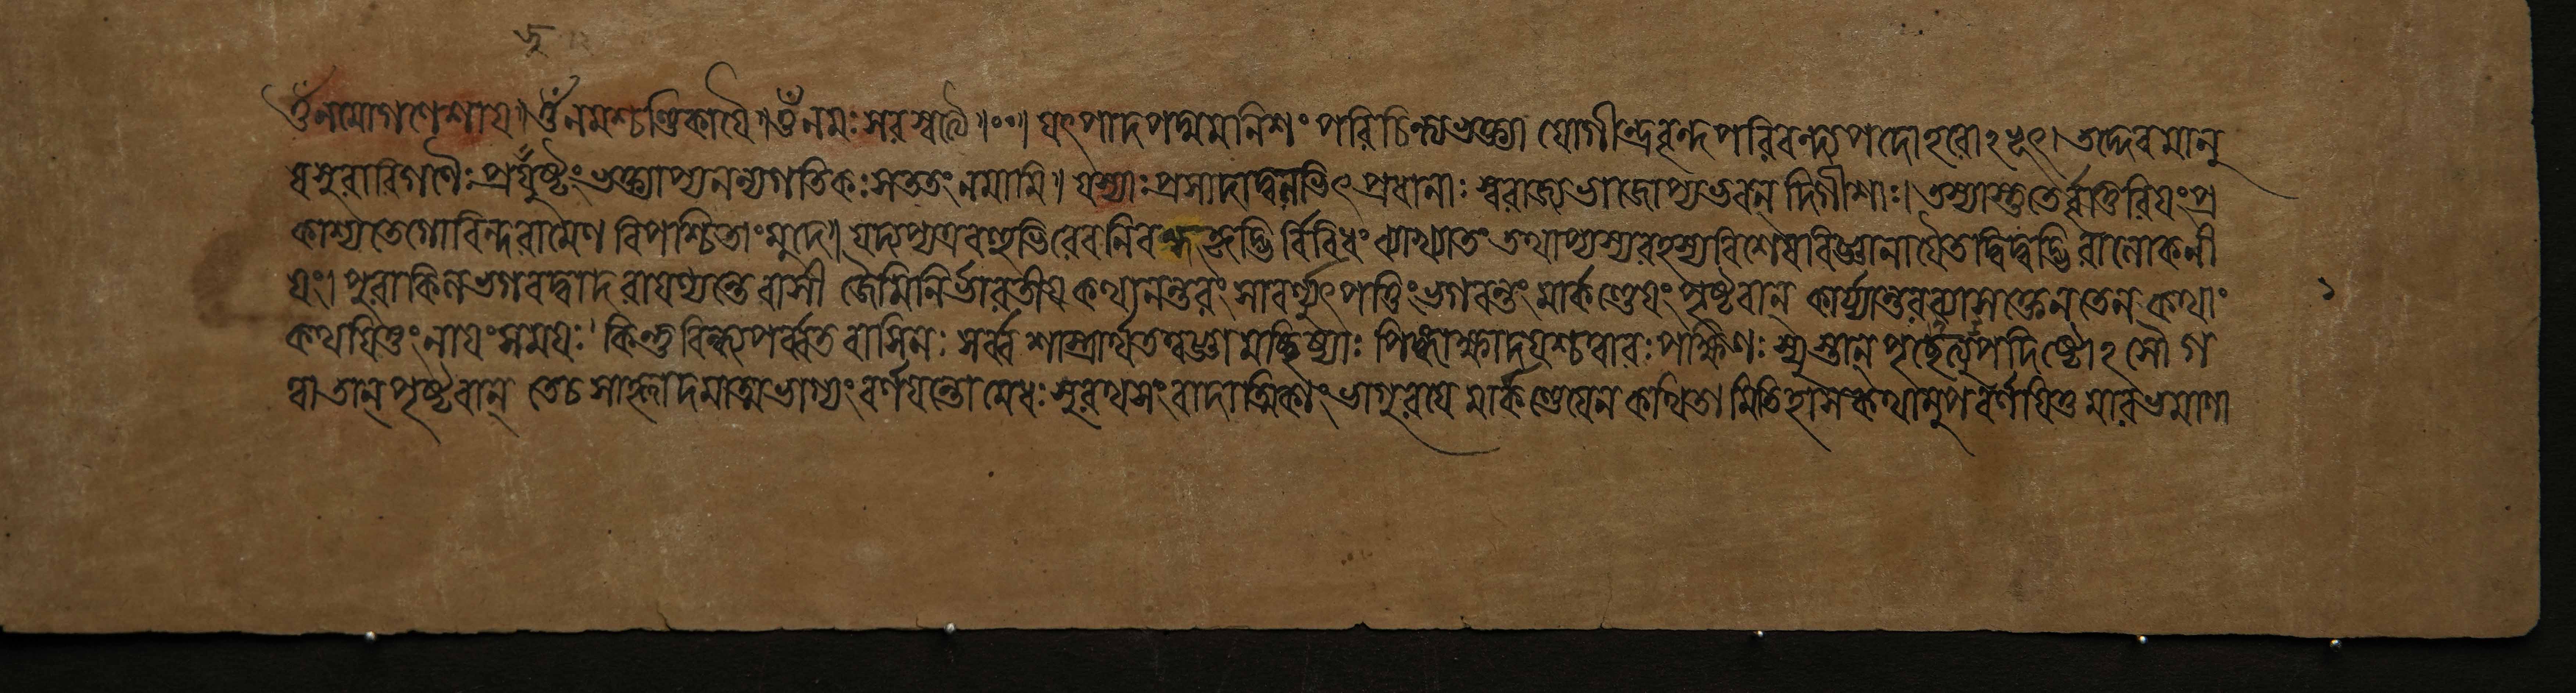 ওঁ নমো গণেশায়॥ ওঁ নমশ্চণ্ডিকায়ৈ॥ ওঁ নমঃ সরস্বত্যৈ॥০০॥ যৎপাদপদ্মমনিশং পরিচিন্ত্য ভক্ত্যা যোগীন্দ্রবৃন্দপরিবন্দ্যপদোহরোঽভূৎ। তদ্দেবমানু
ষসুরারিগণৈঃ প্রঘুষ্টং ভক্ত্যাপ্যনন্যগতিকঃ সততং নমামি॥ যস্যাঃ প্রসাদাদ্বলভিৎপ্রধানাঃ স্বরাজ্যভাজোপ্যভবন্ দিগীশাঃ। তস্যাস্তুতের্ব্বাণ্ডিরিয়ং প্র
কাশ্যতে গোবিন্দরামেণ বিপশ্চিতাং মুদে॥ যদ্যপ্যত্র বহুভিরেব নিবন্ধকৃদ্ভির্বিবিধং ব্যাখ্যাতং তথাপ্যস্য রহস্যবিশেষবিজ্ঞানায়ৈতদ্বিদ্বদ্ভিরালোকনী
য়ং। পুরা কিল ভগবদ্বাদরায়ণান্তেবাসী জৈমিনির্ভারতীয়কথানন্তরং সাবর্ণ্যুৎপত্তিং ভগবন্তং মার্কণ্ডেয়ং পৃষ্টবান্ কার্য্যান্তরব্যাসক্তেন তেন কথাং ১
কথয়িতুং নায়ং সময়ঃ। কিন্তু বিন্ধ্যপর্ব্বতবাসিনঃ সর্ব্বশাস্ত্রার্থতত্বজ্ঞা মচ্ছিষ্যাঃ পিঙ্গাক্ষাদয়শ্চত্বারঃ পক্ষিণঃ স্যুস্তান্ পৃচ্ছেত্যুপদিষ্টোঽসৌ গ
ত্বা তান্ পৃষ্টবান্ তে চ সাহ্লাদমাত্মভাগ্যং বর্ণয়ন্তো মেধঃসুরথসংবাদাত্মিকাং ভাগুরয়ে মার্কণ্ডেয়েন কথিতামিতিহাসকথামুপবর্ণয়িতুমারভমাণা